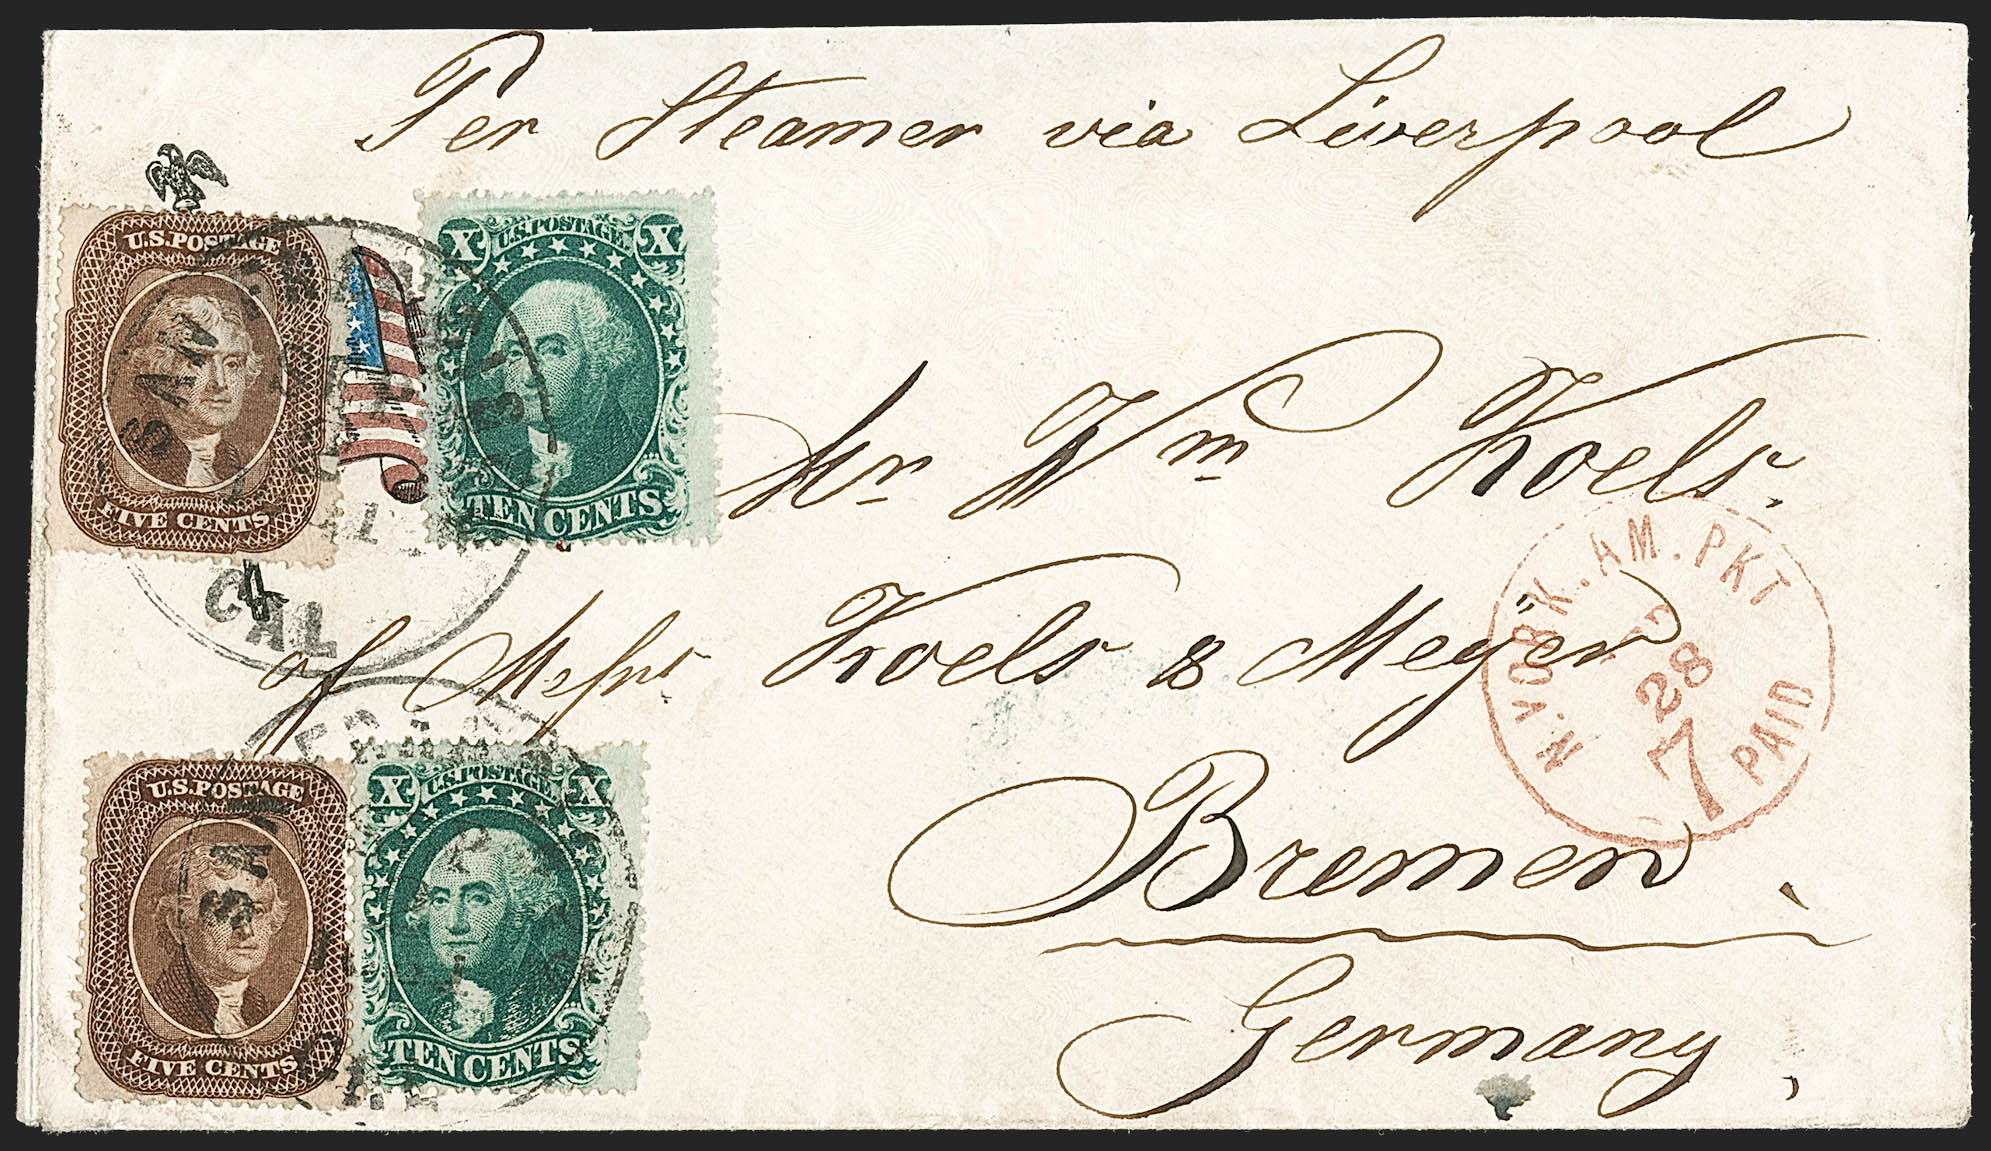 Per Steamer via Liverpool
U.S.POSTAGE
FIVE CENTS
X U.S.POSTAGE X
TEN CENTS
SAN FRAN
1861
CAL
Mr Wm Koels.
of Messrs Koels & Meyer
Bremen,
Germany,
N. YORK. AM. PKT
28
7
PAID
U.S.POSTAGE
FIVE CENTS
X U.S.POSTAGE X
TEN CENTS
SA